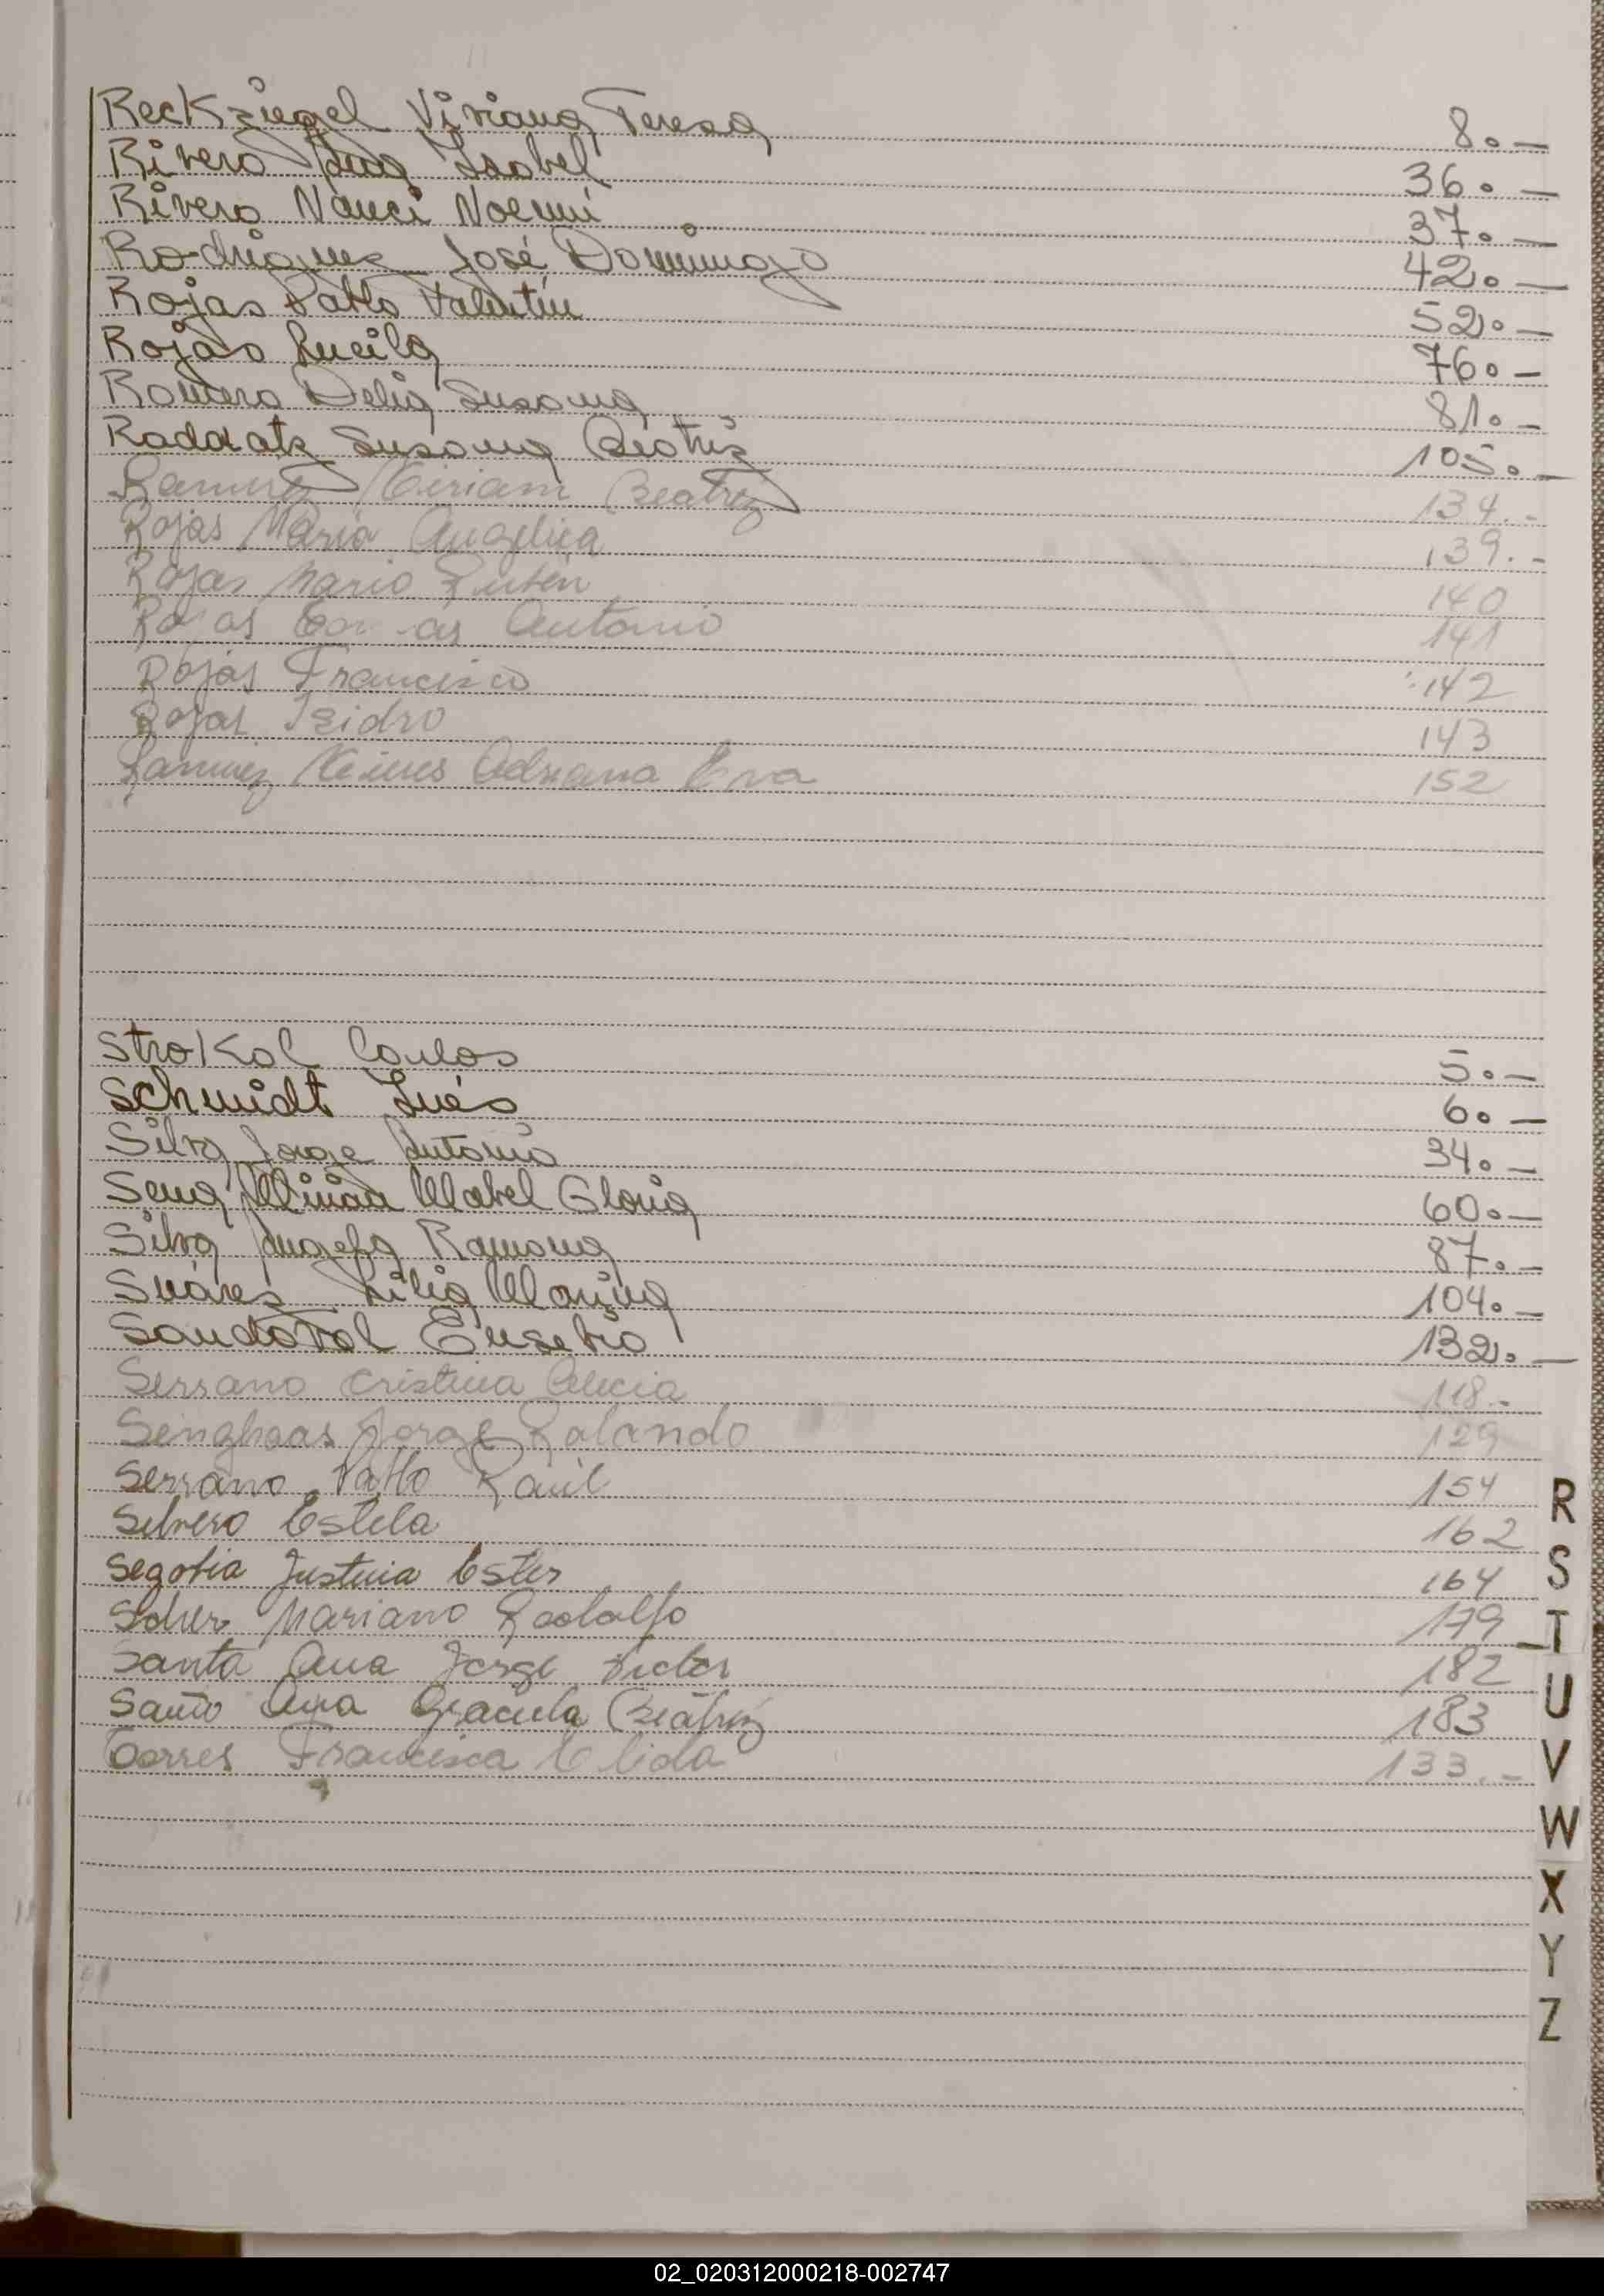 Reckziegel Viviana Teresa 80.—
Rivero Ana Isabel 36.—
Rivero Nanci Noemí 37.—
Rodriguez José Domingo 42.—
Rojas Pablo Valentín 52.—
Rojas Lucila 76.—
Romero Delia Susana 81.—
Raddatz Susana Beatriz 105.—
Ramirez Miriam Beatriz 134.-
Rojas María Angelica 139.-
Rojas Mario Rubén 140
Rojas Antonio 141
Rojas Francisco 142
Rojas Isidro 143
Ramirez Adriana Eva 152
Strokol Carlos 5.—
Schmidt Inés 6.—
Silva Jorge Antonio 34.—
Sena Mirian Mabel Gloria 60.—
Silva Angela Ramona 87.—
Suárez Lilia Marina 104.—
Sandoval Eusebio 132.—
Serrano Cristina Alicia 118.-
Senghaas Jorge Rolando 129
Serrano Pablo Raúl 154
Silvero Estela 162
Segovia Justina Ester 164
Mariano Rodolfo 179
Santa Ana Jorge Victor 182
Santo Ana Graciela Beatriz 183
Torres Francisca Elida 133.-
R
S
T
U
V
W
X
Y
Z
02_020312000218-002747